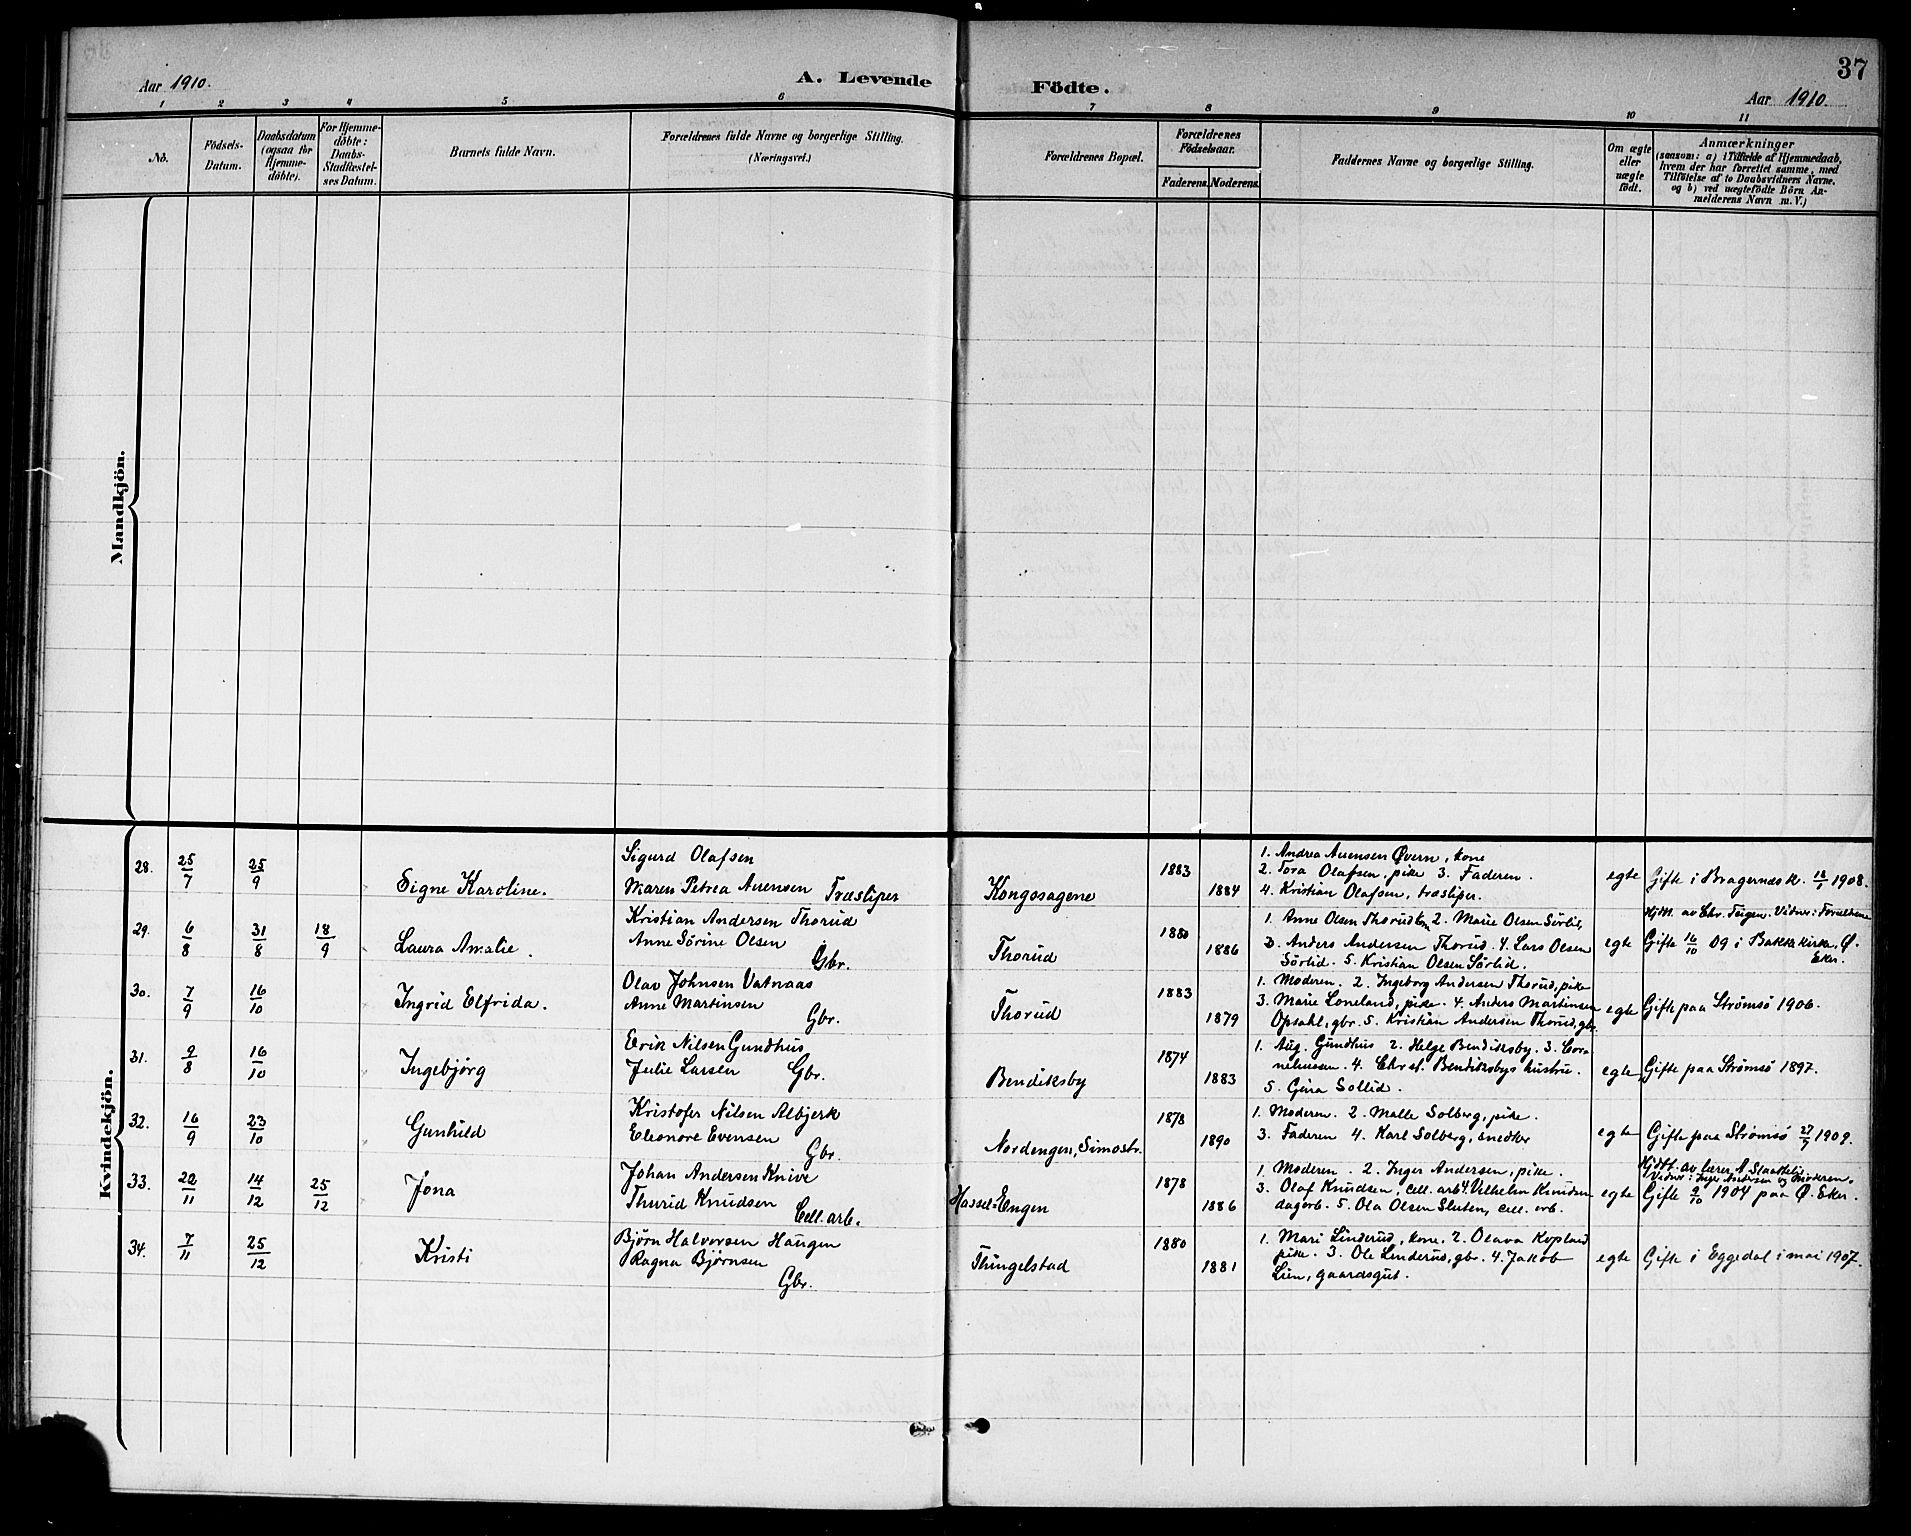 37
Aar 1910.
A. Levende
Födte.
Aar 1910.
1 2 3 4 5 6 7 8 9 10 11
No.
Födsels-
Datum.
Daabsdatum
(ogsaa for
Hjemme-
döbte).
For Hjemme-
döbte:
Daabs-
Stadfæstel-
ses Datum.
Barnets fulde Navn.
Forældrenes fulde Navne og borgerlige Stilling.
(Næringsvei.)
Forældrenes Bopæl.
Forældrenes
Födselsaar.
Faderens. Moderens.
Faddernes Navne og borgerlige Stilling.
Om ægte
eller
uægte
født.
Anmærkninger
(saasom: a) i Tilfælde af Hjemmedaab,
hvem der har forrettet samme, med
Tilföielse af to Daabsvidners Navne,
og b) ved uægtefödte Börn An-
melderens Navn m. V.)
Mandkjön.
Kvindekjön.
28. 25/7 25/9 Signe Karoline.
Sigurd Olafsen
Maren Petrea Auensen Træsliper
Kongssagene 1883 1884
1. Andrea Auensen Øvern, kone
2. Tora Olafsen, pike 3. Faderen.
4. Kristian Olafsen, træsliper.
egte Gifte i Bragernæs k. 1908.
29. 6/8 31/8 18/9 Laura Amalie.
Kristian Andersen Thorud
Anne Sörine Olsen
Gbr.
Thorud 1880 1886
1. Anne Olsen Thorud 2. Marie Olsen Sörlid,
3. Anders Andersen Thorud. 4. Lars Olsen
Sörlid. 5. Kristian Olsen Sörlid.
egte
Hjdt. av Chr. Teigen. Vidner: Forældrene
Gifte 16/10 09 i Bakke kirke, Ø.
Eker.
30. 7/9 16/10 Ingrid Elfrida.
Olav Johnsen Vatnaas
Anne Martinsen
Gbr.
Thorud 1883 1879
1. Moderen. 2. Ingeborg Andersen Thorud, pike
3. Marie Loneland, pike. 4. Anders Martinsen
Opsahl, gbr. 5. Kristian Andersen Thorud, gbr.
egte Gifte paa Strømsö 1906.
31. 9/8 16/10 Ingebjörg
Erik Nilsen Gundhus
Julie Larsen Gbr.
Bendiksby 1874 1883
1. Aug. Gundhus 2. Helge Bendiksby. 3. Cor-
neliussen. 4. Chr. st. Bendiksbys hustru.
5. Gina Sollid.
egte Gifte paa Strømsö 1897.
32. 16/9 23/10 Gunhild
Kristofer Nilsen Albjerk
Eleonore Evensen
Gbr.
Nordengen, Simostr. 1878 1890
1. Moderen. 2. Malle Solberg, pike.
3. Faderen 4. Karl Solberg, snedker
egte Gifte paa Strømsö 27/9 1909.
33. 22/11 14/12 25/12 Jona
Johan Andersen Knive
Thurid Knudsen
Cell. arb.
Hassel-Engen 1878 1886
1. Moderen. 2. Inger Andersen, pike.
3. Olaf Knudsen, cell. arb 4. Vilhelm Knudsen
dagarb. 5. Ola Olsen Sluten, cell. arb.
egte
Hjdt. av lærer A. Slaattelid.
Vidner: Inger Andersen og Moderen.
Gifte 9/10 1904 paa Ø. Eker.
34. 7/11 25/12 Kristi
Björn Halvorsen Haugen
Ragna Bjørnsen
Gbr.
Thingelstad 1880 1881
1. Mari Linderud, kone. 2. Olava Kopland
pike. 3. Ole Linderud, gbr. 4. Jakob
Lien, gaardsgut.
egte Gifte i Eggedal i mai 1907.